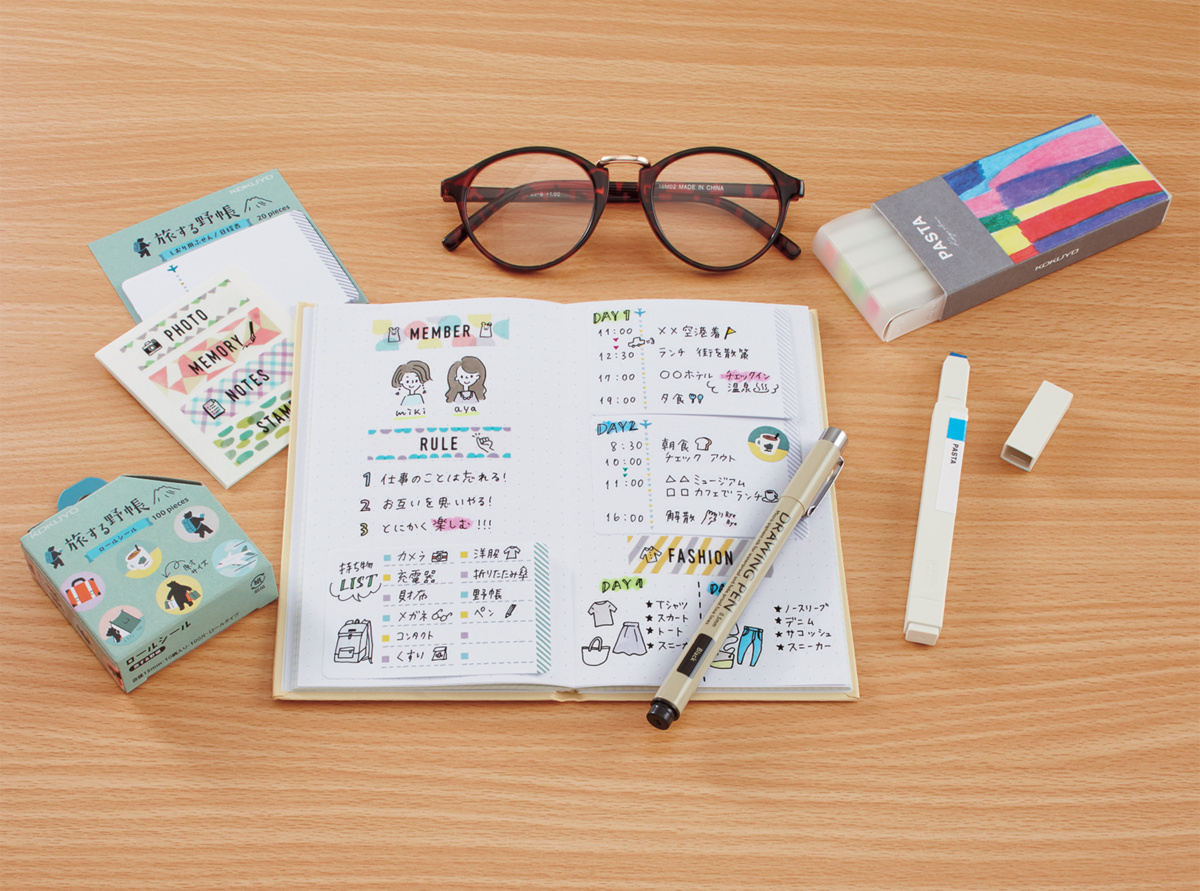 KOKUYO
旅する野帳
しおり用ふせん/日程表
20 pieces
PHOTO
MEMORY
NOTES
STAM
KOKUYO
旅する野帳
ロールシール
100 pieces
原寸サイズ
ロールシール
MADE IN CHINA
PASTA
KOKUYO
PASTA
MEMBER
miki
aya
RULE
1 仕事のことは忘れる!
2 お互いを思いやる!
3 とにかく楽しむ!!!
持ち物
LIST
カメラ
充電器
財布
メガネ
コンタクト
くすり
洋服
折りたたみ傘
野帳
ペン
DAY 1
11:00 ××空港着
12:30 ランチ 街を散策
17:00 ○○ホテル チェックイン
温泉
19:00 夕食
DAY2
8:30 朝食
10:00 チェック アウト
11:00 △△ミュージアム
□□カフェでランチ
16:00 解散 Bye Bye
FASHION
DAY 1
★Tシャツ
★スカート
★トート
★スニーカ
DA
★ノースリーブ
★デニム
★サコッシュ
★スニーカー
DRAWING PEN
Black